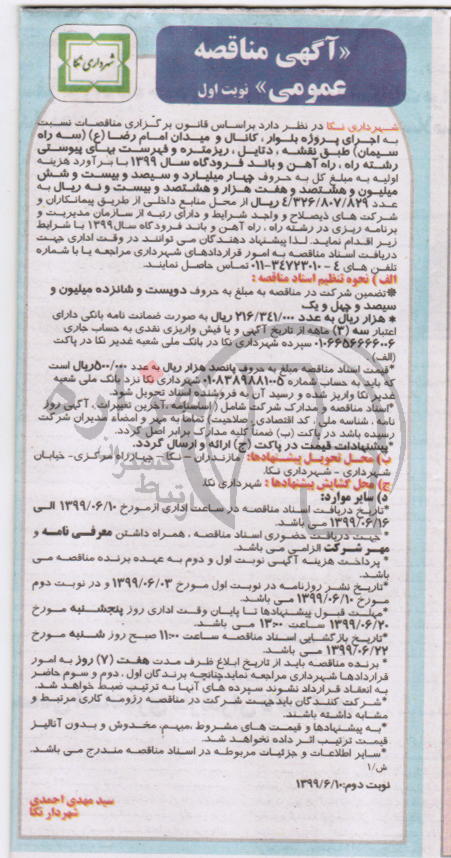 شهرداری نکا
«آگهی مناقصه
عمومی» نوبت اول
شهرداری نکا در نظر دارد براساس قانون برگزاری مناقصات نسبت
به اجرای پروژه بلوار، کانال و میدان امام رضا (ع) (سه راه
سیمان) طبق نقشه، دتایل، ریزمتره و فهرست بهای پیوستی
رشته راه، راه آهن و باند فرودگاه سال ۱۳۹۹ با برآورد هزینه
اولیه به مبلغ کل به حروف چهار میلیارد و سیصد و بیست و شش
میلیون و هشتصد و هفت هزار و هشتصد و بیست و نه ریال به
عدد ۴/۳۲۶/۸۰۷/۸۲۹ ریال از محل منابع داخلی از طریق پیمانکاران و
شرکت های ذیصلاح و واجد شرایط و دارای رتبه از سازمان مدیریت و
برنامه ریزی در رشته راه، راه آهن و باند فرودگاه سال ۱۳۹۹ با شرایط
زیر اقدام نماید. لذا پیشنهاد دهندگان می توانند در وقت اداری جهت
دریافت اسناد مناقصه به امور قراردادهای شهرداری مراجعه یا با شماره
تلفن های ۴ - ۳۴۷۲۳۰۱۰-۰۱۱ تماس حاصل نمایند.
الف) نحوه تنظیم اسناد مناقصه :
*تضمین شرکت در مناقصه به مبلغ به حروف دویست و شانزده میلیون و
سیصد و چهل و یک
* هزار ریال به عدد ۲۱۶/۳۴۱/۰۰۰ ریال به صورت ضمانت نامه بانکی دارای
اعتبار سه (۳) ماهه از تاریخ آگهی و یا فیش واریزی نقدی به حساب جاری
۰۱۰۶۶۵۶۶۶۶۰۰۶ سپرده شهرداری نکا در بانک ملی شعبه غدیر نکا در پاکت
(الف)
*قیمت اسناد مناقصه مبلغ به حروف پانصد هزار ریال به عدد ۵۰۰/۰۰۰ریال است
که باید به حساب شماره ۰۱۰۸۳۸۹۸۸۱۰۰۵ شهرداری نکا نزد بانک ملی شعبه
غدیر نکا واریز شده و رسید آن به فروشنده اسناد تحویل شود.
*اسناد مناقصه و مدارک شرکت شامل ( اساسنامه ،آخرین تغییرات، آگهی روز
نامه ، شناسه ملی ، کد اقتصادی ، صلاحیت) تماما به مهر و امضاء مدیران شرکت
رسیده باشد در پاکت (ب) ضمناً کلیه مدارک برابر اصل گردد.
*پیشنهادات قیمت در پاکت (ج) ارائه و ارسال گردد.
ب) محل تحویل پیشنهادها: مازندران - نکا - چهارراه مرکزی- خیابان
شهرداری - شهرداری نکا.
ج) محل گشایش پیشنهادها : شهرداری نکا.
د) سایر موارد:
*تاریخ دریافت اسناد مناقصه در ساعت اداری ازمورخ ۱۳۹۹/۰۶/۱۰ الی
۱۳۹۹/۰۶/۱۶ می باشد.
* جهت دریافت حضوری اسناد مناقصه ، همراه داشتن معرفی نامه و
مهر شرکت الزامی می باشد.
* پرداخت هزینه آگهی نوبت اول و دوم به عهده برنده مناقصه می
باشد.
*تاریخ نشر روزنامه در نوبت اول مورخ ۱۳۹۹/۰۶/۰۳ و در نوبت دوم
مورخ ۱۳۹۹/۰۶/۱۰ می باشد.
*مهلت قبول پیشنهادها تا پایان وقت اداری روز پنجشنبه مورخ
۱۳۹۹/۰۶/۲۰ ساعت ۱۳:۰۰ می باشد.
*تاریخ بازگشایی اسناد مناقصه ساعت ۱۱:۰۰ صبح روز شنبه مورخ
۱۳۹۹/۰۶/۲۲ می باشد.
* برنده مناقصه باید از تاریخ ابلاغ ظرف مدت هفت (۷) روز به امور
قراردادها شهرداری مراجعه نماید چنانچه برندگان اول ، دوم و سوم حاضر
به انعقاد قرارداد نشوند سپرده های آنها به ترتیب ضبط خواهد شد.
*شرکت کنندگان باید جهت شرکت در مناقصه رزومه کاری مرتبط و
مشابه داشته باشند.
*به پیشنهادها و قیمت های مشروط ،مبهم، مخدوش و بدون آنالیز
قیمت ترتیب اثر داده نخواهد شد.
*سایر اطلاعات و جزئیات مربوطه در اسناد مناقصه مندرج می باشد.
ش/۱
نوبت دوم:۱۳۹۹/۶/۱۰
سید مهدی احمدی
شهردار نکا